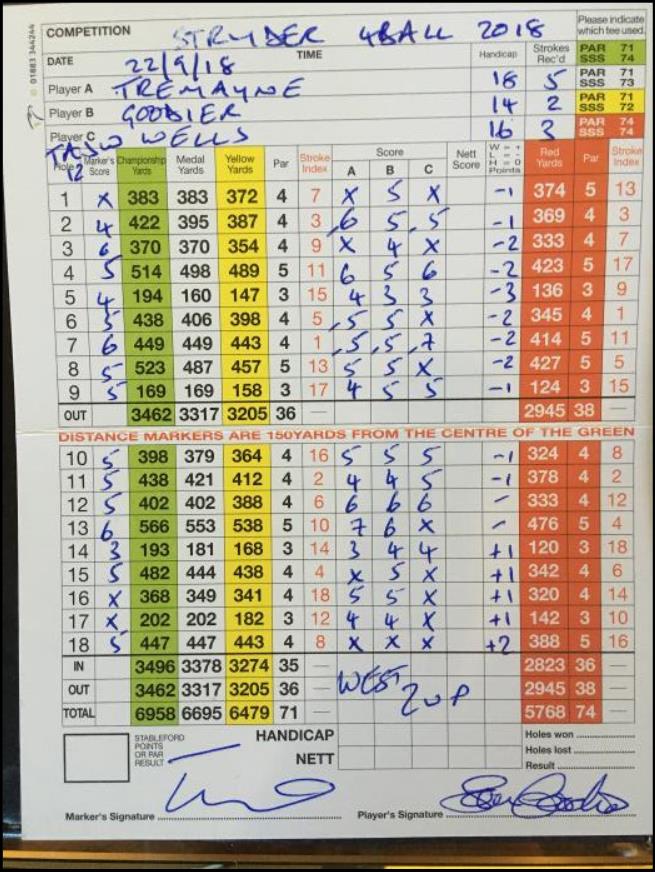 © 01883 344244
COMPETITION STRYDER 4BALL 2018 Please indicate which tee used.
DATE 22/9/18 TIME Handicap Strokes Rec'd PAR 71 SSS 74
Player A TREMAYNE 18 5 PAR 71 SSS 73
Player B GOODIER 14 2 PAR 71 SSS 72
Player C WELLS 16 3 PAR 74 SSS 74
12
Hole Marker's Score Championship Yards Medal Yards Yellow Yards Par Stroke Index Score A B C Nett Score W = + L = - H = 0 Points Red Yards Par Stroke Index
1 X 383 383 372 4 7 X 5 X -1 374 5 13
2 4 422 395 387 4 3 6 5 5 -1 369 4 3
3 6 370 370 354 4 9 X 4 X -2 333 4 7
4 5 514 498 489 5 11 6 5 6 -2 423 5 17
5 4 194 160 147 3 15 4 3 3 -3 136 3 9
6 5 438 406 398 4 5 5 5 X -2 345 4 1
7 6 449 449 443 4 1 5 5 7 -2 414 5 11
8 5 523 487 457 5 13 5 5 X -2 427 5 5
9 5 169 169 158 3 17 4 5 5 -1 124 3 15
OUT 3462 3317 3205 36 — 2945 38 —
DISTANCE MARKERS ARE 150YARDS FROM THE CENTRE OF THE GREEN
10 5 398 379 364 4 16 5 5 5 -1 324 4 8
11 5 438 421 412 4 2 4 4 5 -1 378 4 2
12 5 402 402 388 4 6 6 6 6 - 333 4 12
13 6 566 553 538 5 10 7 6 X - 476 5 4
14 3 193 181 168 3 14 3 4 4 +1 120 3 18
15 5 482 444 438 4 4 X 5 X +1 342 4 6
16 X 368 349 341 4 18 5 5 X +1 320 4 14
17 X 202 202 182 3 12 4 4 X +1 142 3 10
18 5 447 447 443 4 8 X X X +2 388 5 16
IN 3496 3378 3274 35 — 2823 36 —
OUT 3462 3317 3205 36 — WEST 2945 38 —
TOTAL 6958 6695 6479 71 — 2 UP 5768 74 —
STABLEFORD POINTS OR PAR RESULT HANDICAP Holes won
NETT Holes lost
Result
Marker's Signature Player's Signature